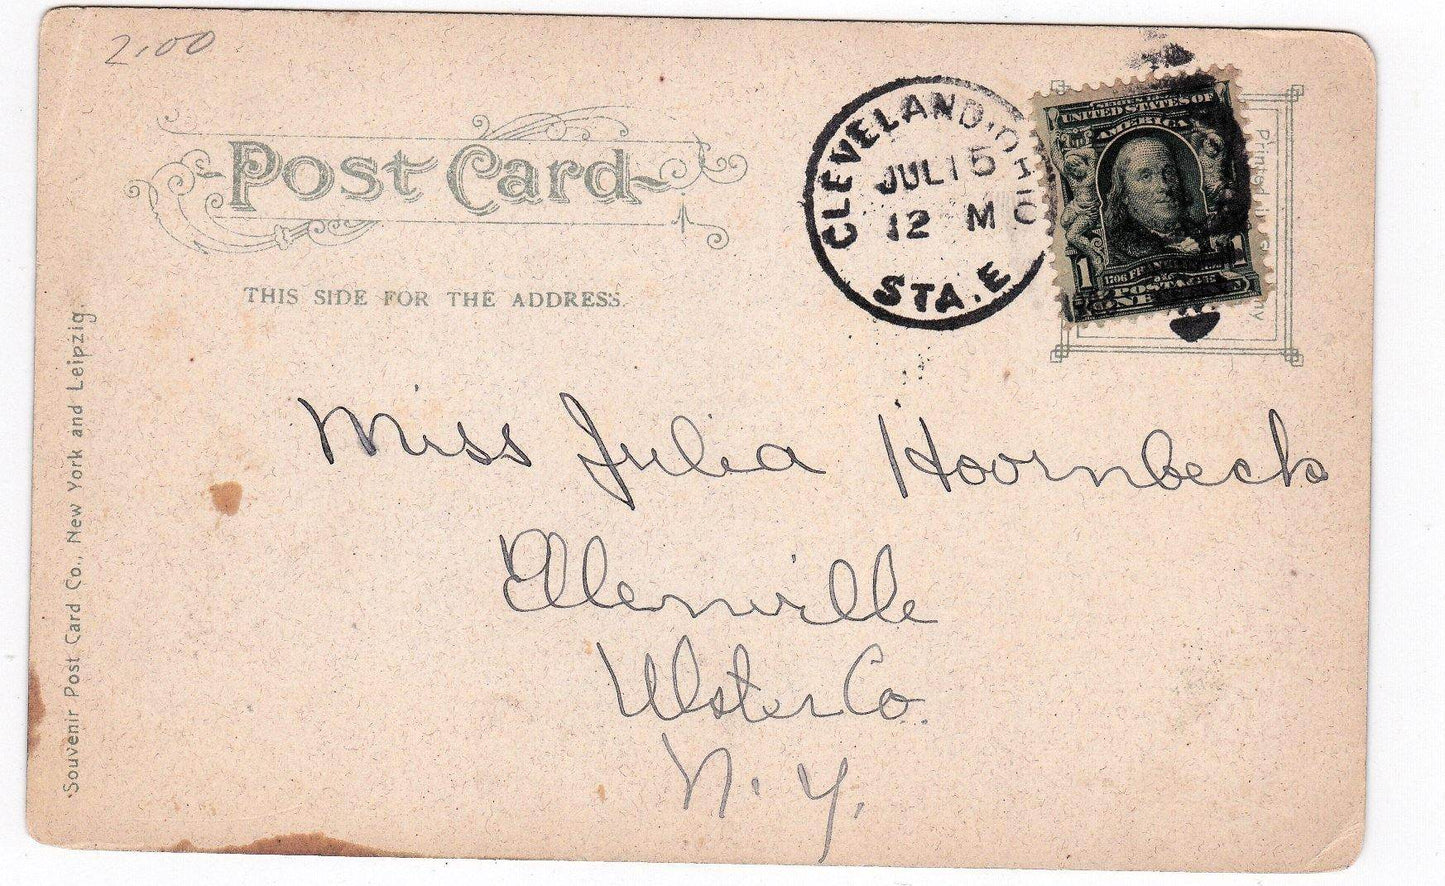 2.00
Post Card
THIS SIDE FOR THE ADDRESS.
CLEVELAND, OHIO
JUL 15
12 M
STA. E
SERIES 1902
UNITED STATES OF
AMERICA
1 1
POSTAGE
ONE
Miss Julia Hoornbeck
Ellenville
Ulster Co.
N. Y.
Souvenir Post Card Co., New York and Leipzig.